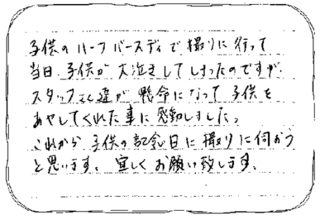 子供のハーフバースディで撮りに行って
当日、子供が大泣きしてしまったのですが、
スタッフさん達が懸命になって子供を
あやしてくれた事に感動しました。
これから子供の記念日に撮りに伺おう
と思います。宜しくお願い致します。